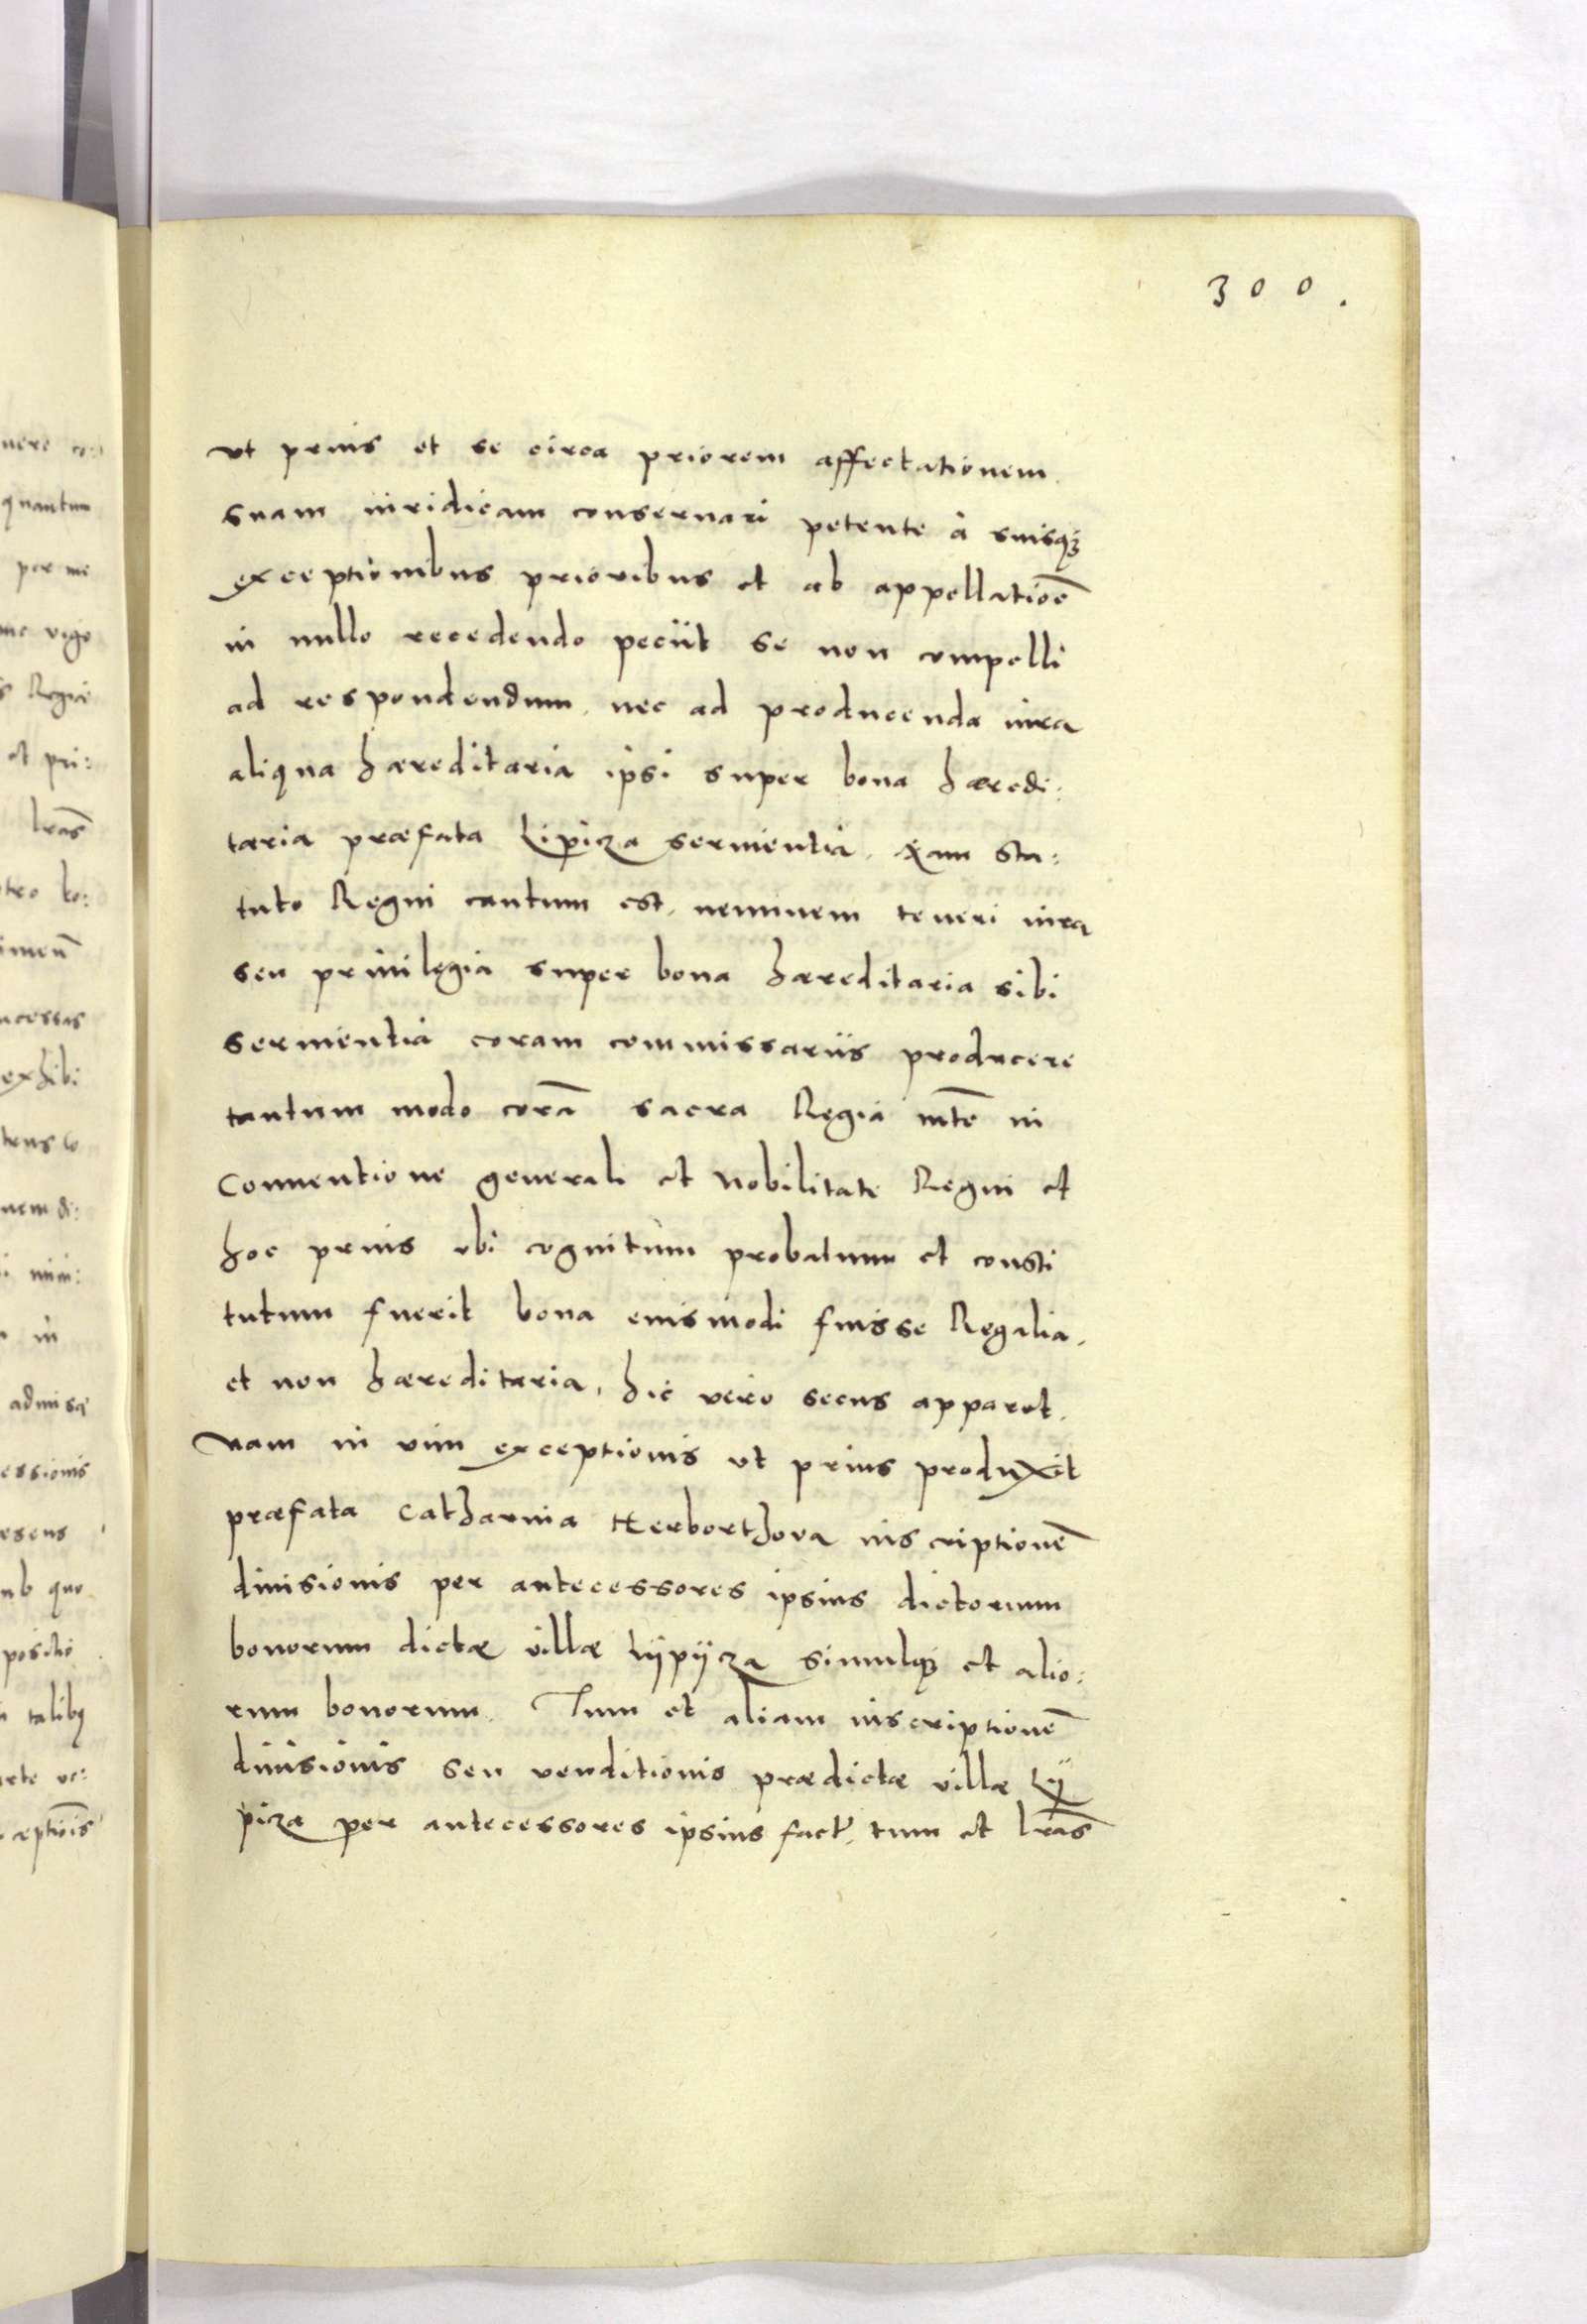 300.
ut prius et se circa priorem affectationem
suam iuridicam conseruari petente à suisq3
exceptionibus prioribus et ab appellatiõe
in nullo recedendo peciit se non compelli
ad respondendum, nec ad producenda iura
aliqua hæreditaria ipsi super bona hæredi:
taria præfata Lipicza seruientia. Nam sta:
tuto Regni cautum est, neminem teneri iura
seu priuilegia super bona hæreditaria sibi
seruientia coram commissariis producere
tantum modo corã sacra Regia mte in
Conuentione generali et Nobilitate Regni et
hoc prius ubi cognitum probatum et consti
tutum fuerit bona eiusmodi fuisse Regalia,
et non hæreditaria, hic vero secus apparet,
Nam in vim exceptionis ut prius produxit
præfata Catharina Herborthova inscriptionẽ
diuisionis per antecessores ipsius dictorum
bonorum dictæ villæ Lÿpÿcza simulq3 et alio:
rum bonorum. Tum et aliam inscriptionẽ
diuisionis seu venditionis prædictæ villæ Lÿ
picza per antecessores ipsius fact. tum et lras
quantum
per me
Regiæ
et pri:
lras
exhibi
nem di:
in
essionis